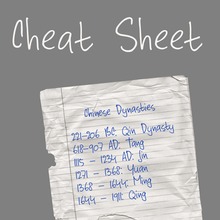 Cheat Sheet
Chinese Dynasties
221-206 BC: Qin Dynasty
618-907 AD: Tang
1115 - 1234 AD: Jin
1271 - 1368: Yuan
1368 - 1644: Ming
1644 - 1911: Qing